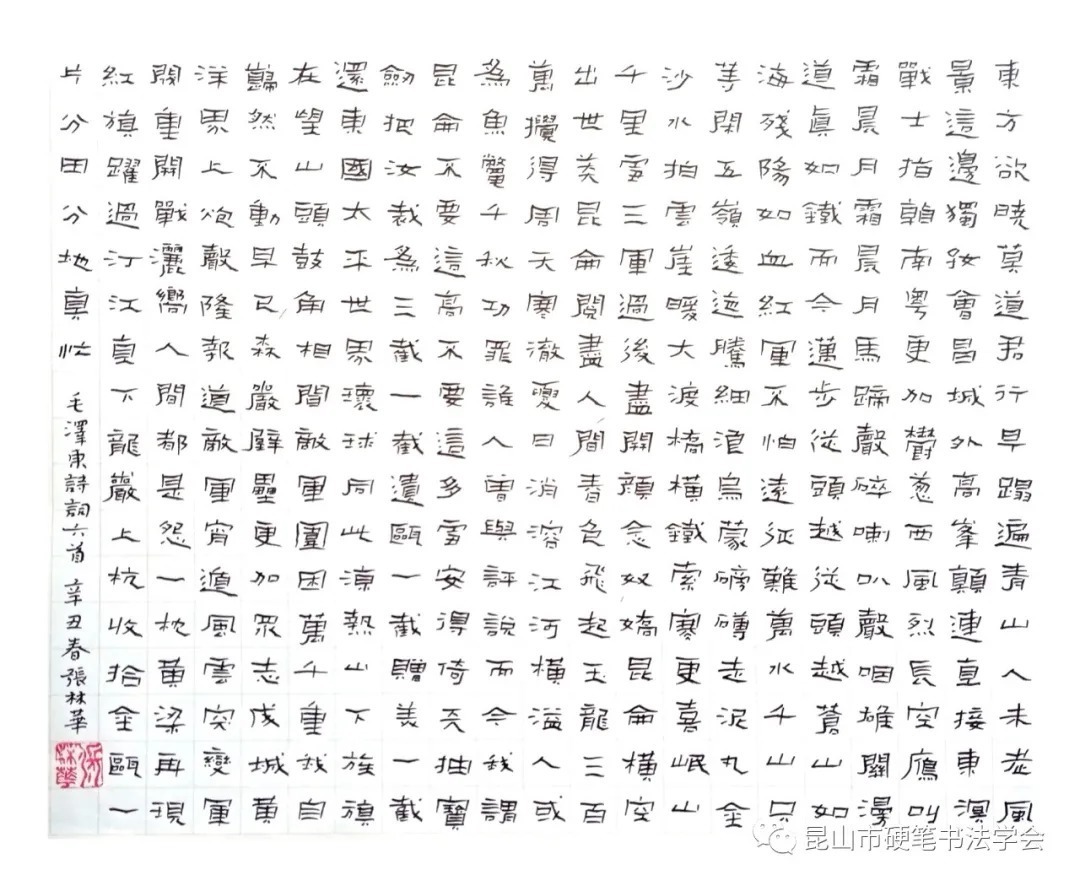 東方欲曉莫道君行早蹋遍青山人未老風
景這邊獨好會昌城外高峯顛連直接東溟
戰士指看南粵更加鬱蔥西風烈長空鴈叫
霜晨月霜晨月馬蹄聲碎喇叭聲咽雄關漫
道真如鐵而今邁步從頭越從頭越蒼山如
海殘陽如血紅軍不怕遠征難萬水千山只
等閑五嶺逶迤騰細浪烏蒙磅礴走泥丸金
沙水拍雲崖暖大渡橋橫鐵索寒更喜岷山
千里雪三軍過後盡開顏念奴嬌昆侖橫空
出世莽昆侖閱盡人間春色飛起玉龍三百
萬攪得周天寒澈夏日消溶江河橫溢人或
為魚鱉千秋功罪誰人曾與評說而今我謂
昆侖不要這高不要這多雪安得倚天抽寶
劍把汝裁為三截一截遺甌一截贈美一截
還東國太平世界環球同此涼熱山下旌旗
在望山頭鼓角相聞敵軍圍困萬千重我自
巋然不動早已森嚴壁壘更加眾志成城黃
洋界上炮聲隆報道敵軍宵遁風雲突變軍
閥重開戰灑嚮人間都是怨一枕黃粱再現
紅旗躍過汀江直下龍巖上杭收拾金甌一
片分田分地真忙
毛澤東詩詞六首 辛丑春張林華
昆山市硬笔书法学会